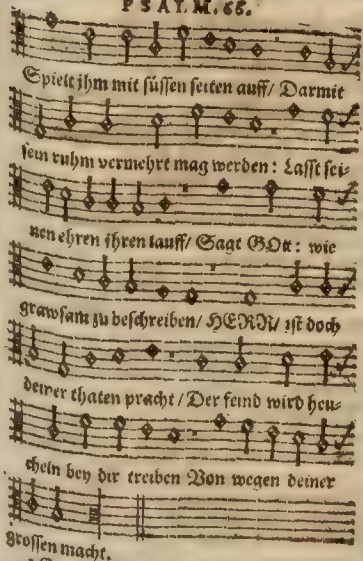 PSALM. 66.
Spielt jhm mit süssen seiten auff/ Darmit
sein ruhm vermehrt mag werden: Lasst sei-
nen ehren jhren lauff/ Sagt GOtt: wie
grawsam zu beschreiben/ HERR/ ist doch
deiner thaten pracht/ Der feind wird heu-
cheln bey dir treiben Von wegen deiner
grossen macht.